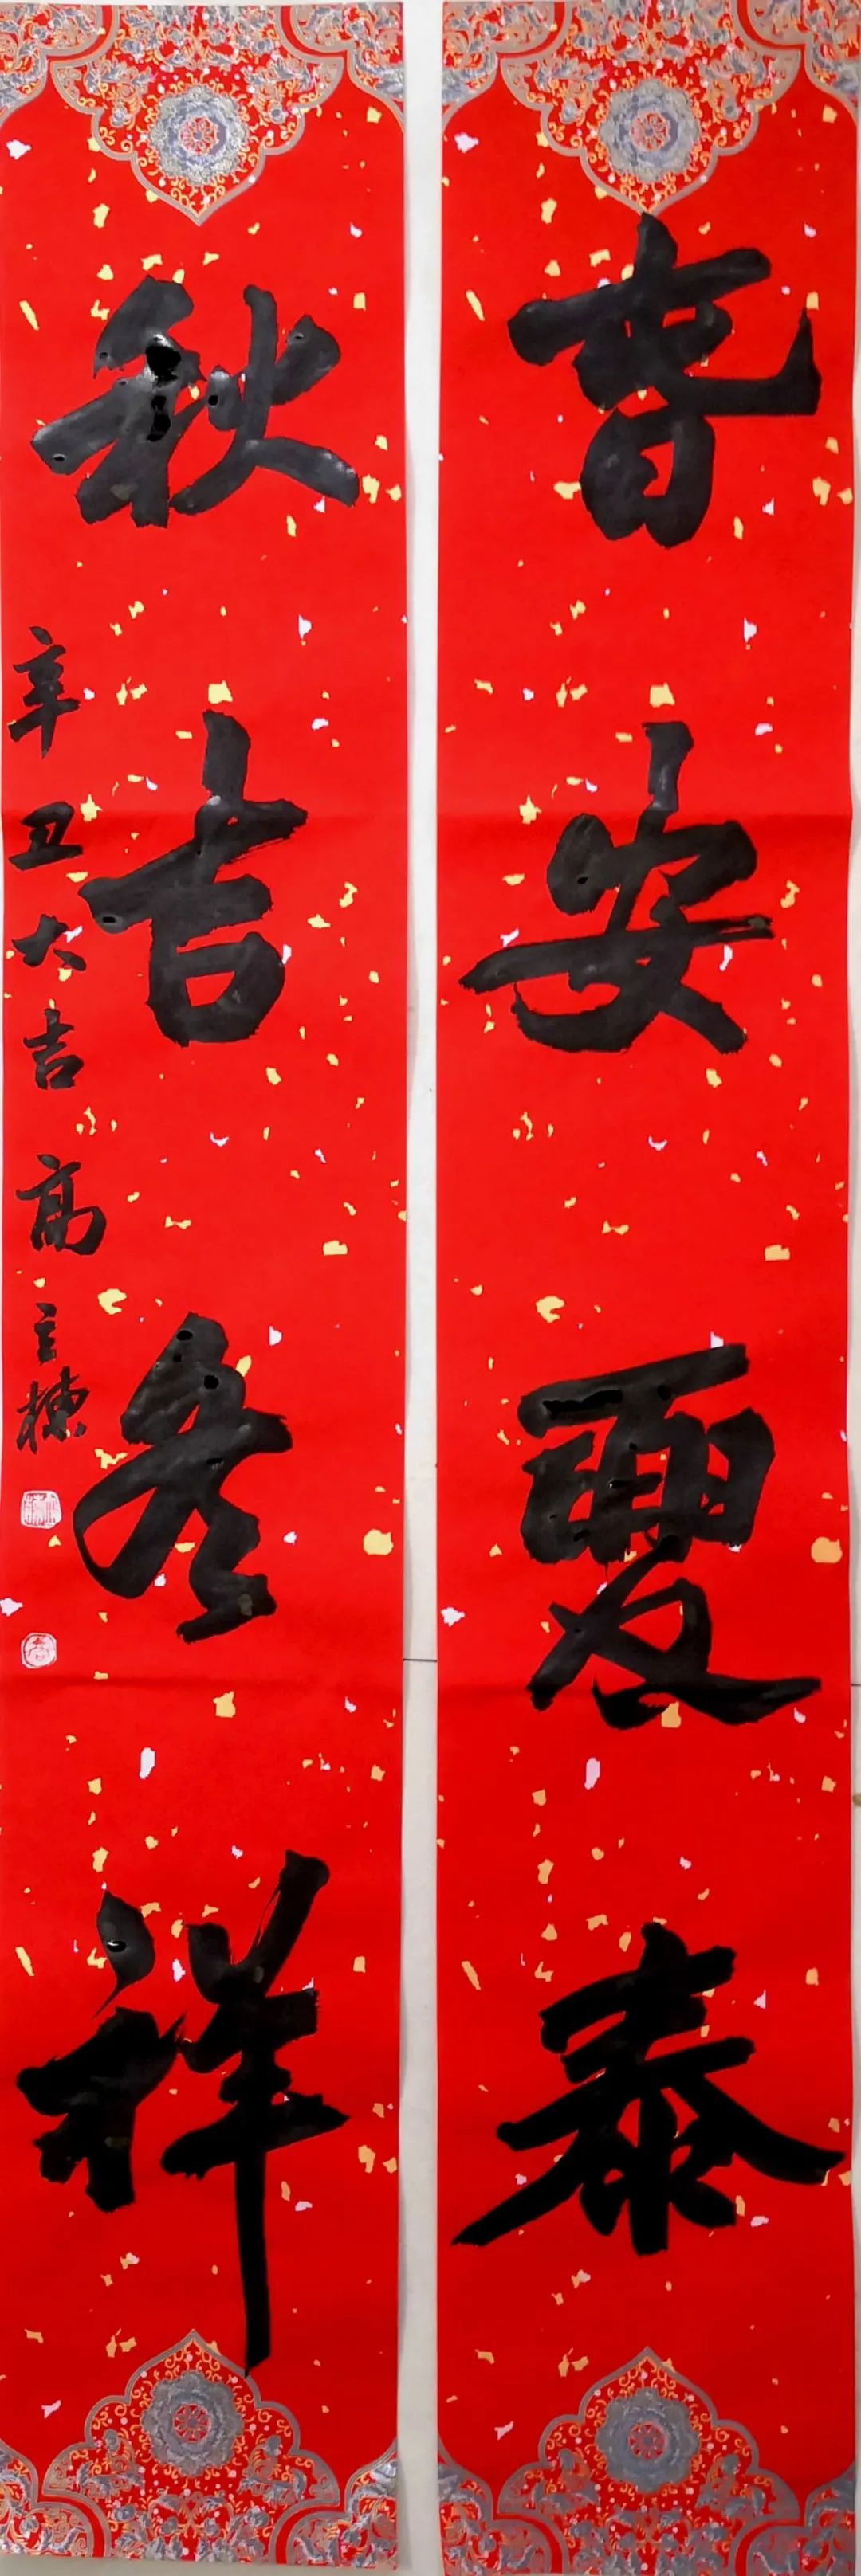 春安夏泰
秋吉冬祥
辛丑大吉 高立栋